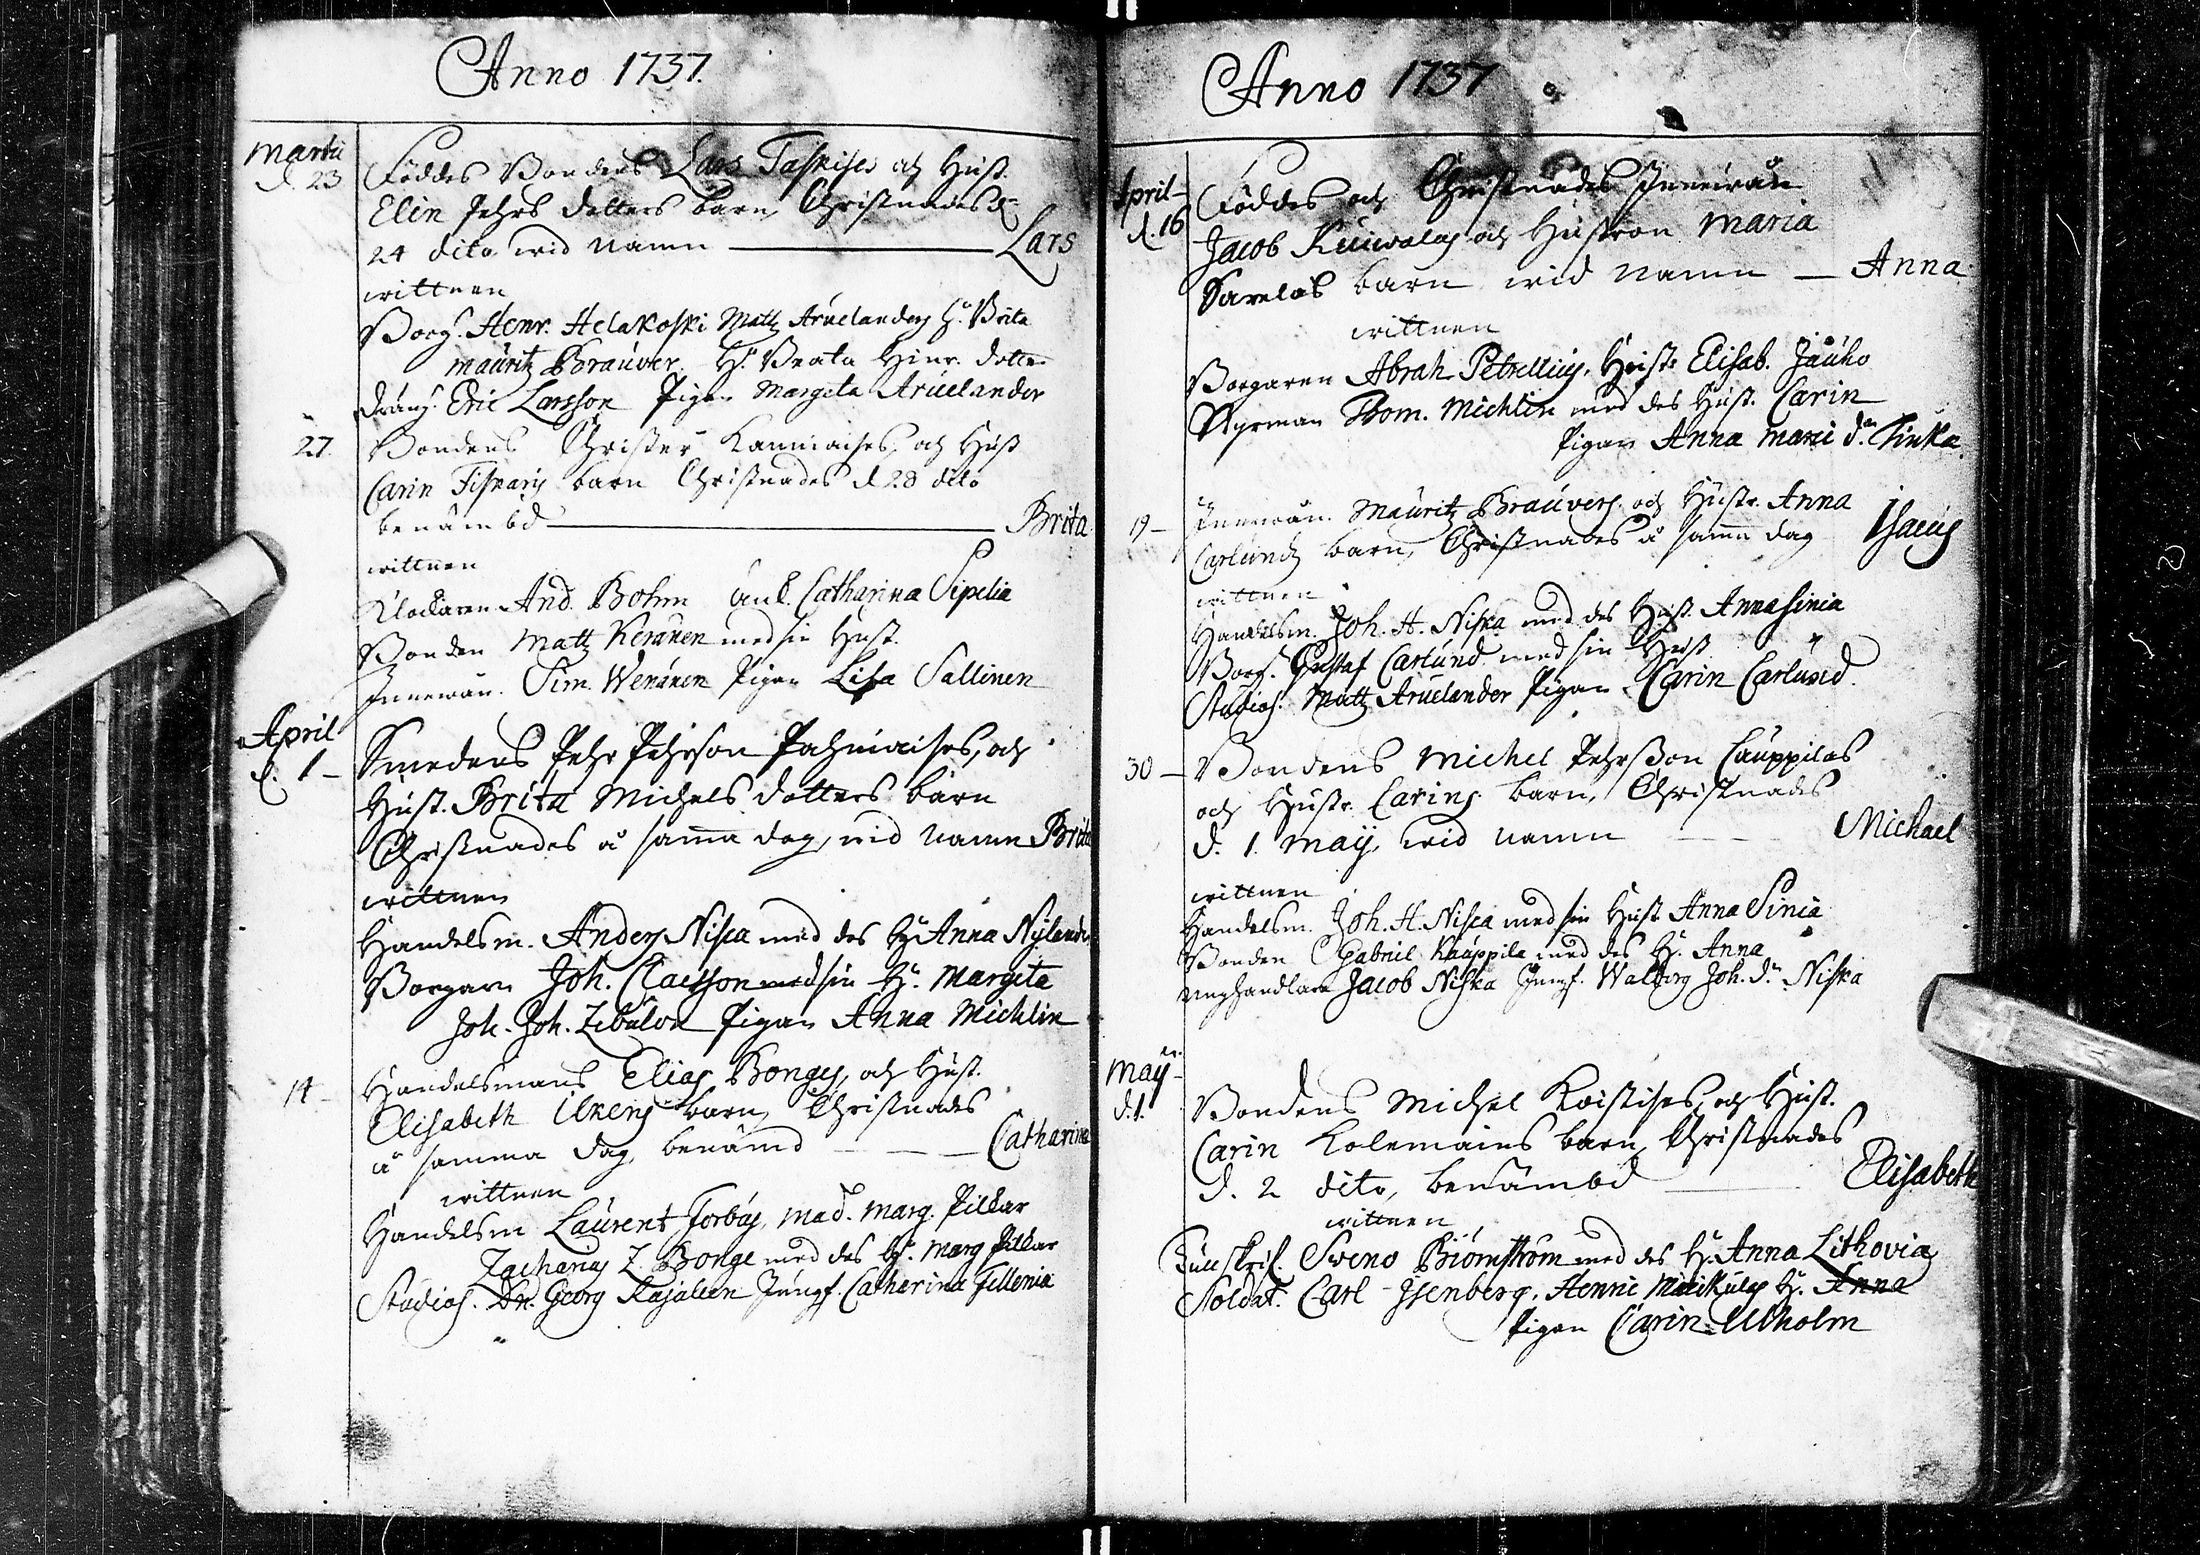 Anno 1737.
Martii
d. 23
Föddes Bondens Lars Taskises och Hust.
Elin Pehrs dotters barn, Christnades d.
24 dito wid namn — Lars
wittnen
Borg. Henr. Helakoski Matts Aruelanders H. Brita
Mauritz Brauver. H. Beata Hinr. dotter
dräng. Eric Larsson Pigan Margeta Aruelander
27.
Bondens Christer och Hust
Carin barn Christnades d 28 dito
benämbd — Brita
wittnen
Klockaren And. Bohm Catharina Sipelia
Bonden Matts Keränen med sin Hust.
Innewån. Sim. Wenänen Pigan Lisa Sallinen
April
d. 1 —
Smedens Pehr Pehrson och
Hust. Brita Michels dotters barn
Christnades å samma dag, wid namn Brita
wittnen
Handelsm. Anders Nisca med des H Anna Nylander
Borgaren Joh. Claesson med sin H. Margeta
Joh. Joh. Zebulon Pigan Anna Michlin
14 —
Handelsmans Elias Bonges, och Hust.
Elisabeth Ilkens barn, Christnades
å samma dag, benämd — Catharina
wittnen
Handelsm Laurent Forbus, Mad. Marg. Pilkar
Zacharias Z. Bonge med des H. Marg Pilkar
Studios. Dn. Georg Kajaleen Jungf. Catharina Fellenia
Anno 1737
April —
d. 16
Föddes och Christnades Innewån
Jacob och Hustron Maria
Sarelas barn wid namn — Anna
wittnen
Borgaren Abrah Petrellius, Hustr Elisab. Jauho
Styrman Thom. Michlin med des Hust. Carin
Pigan Anna dr. Tinka
19 —
Innewån. Mauritz Brauvers och Hustr. Anna
Carlunds barn, Christnades å samma dag Isacus
wittnen
Handelsm. Joh. H. Niska med des Hust. Anna Sinia
Borg. Gustaf Carlund med sin Hust
Studios. Matts Aruelander Pigan Carin Carlund.
30 —
Bondens Michel Pehrsson Cauppilas
och Hustr. Carins barn, Christnades
d. 1. Maij, wid namn — Michael
wittnen
Handelsm. Joh. H. Nisca med sin Hust Anna Sinia
Bonden Gabriel Kauppila med des H. Anna
Unghandlare Jacob Niska Jungf. Walborg Joh. dr. Niska
Maij —
d. 1.
Bondens Michel och Hust.
Carin barn, Christnades
d. 2 dito, benämbd — Elisabeth
wittnen
Sweno Biörnström med des H. Anna Lithovia
Soldat. Carl Isenberg, Henric H. Anna
Pigan Carin Ulholm